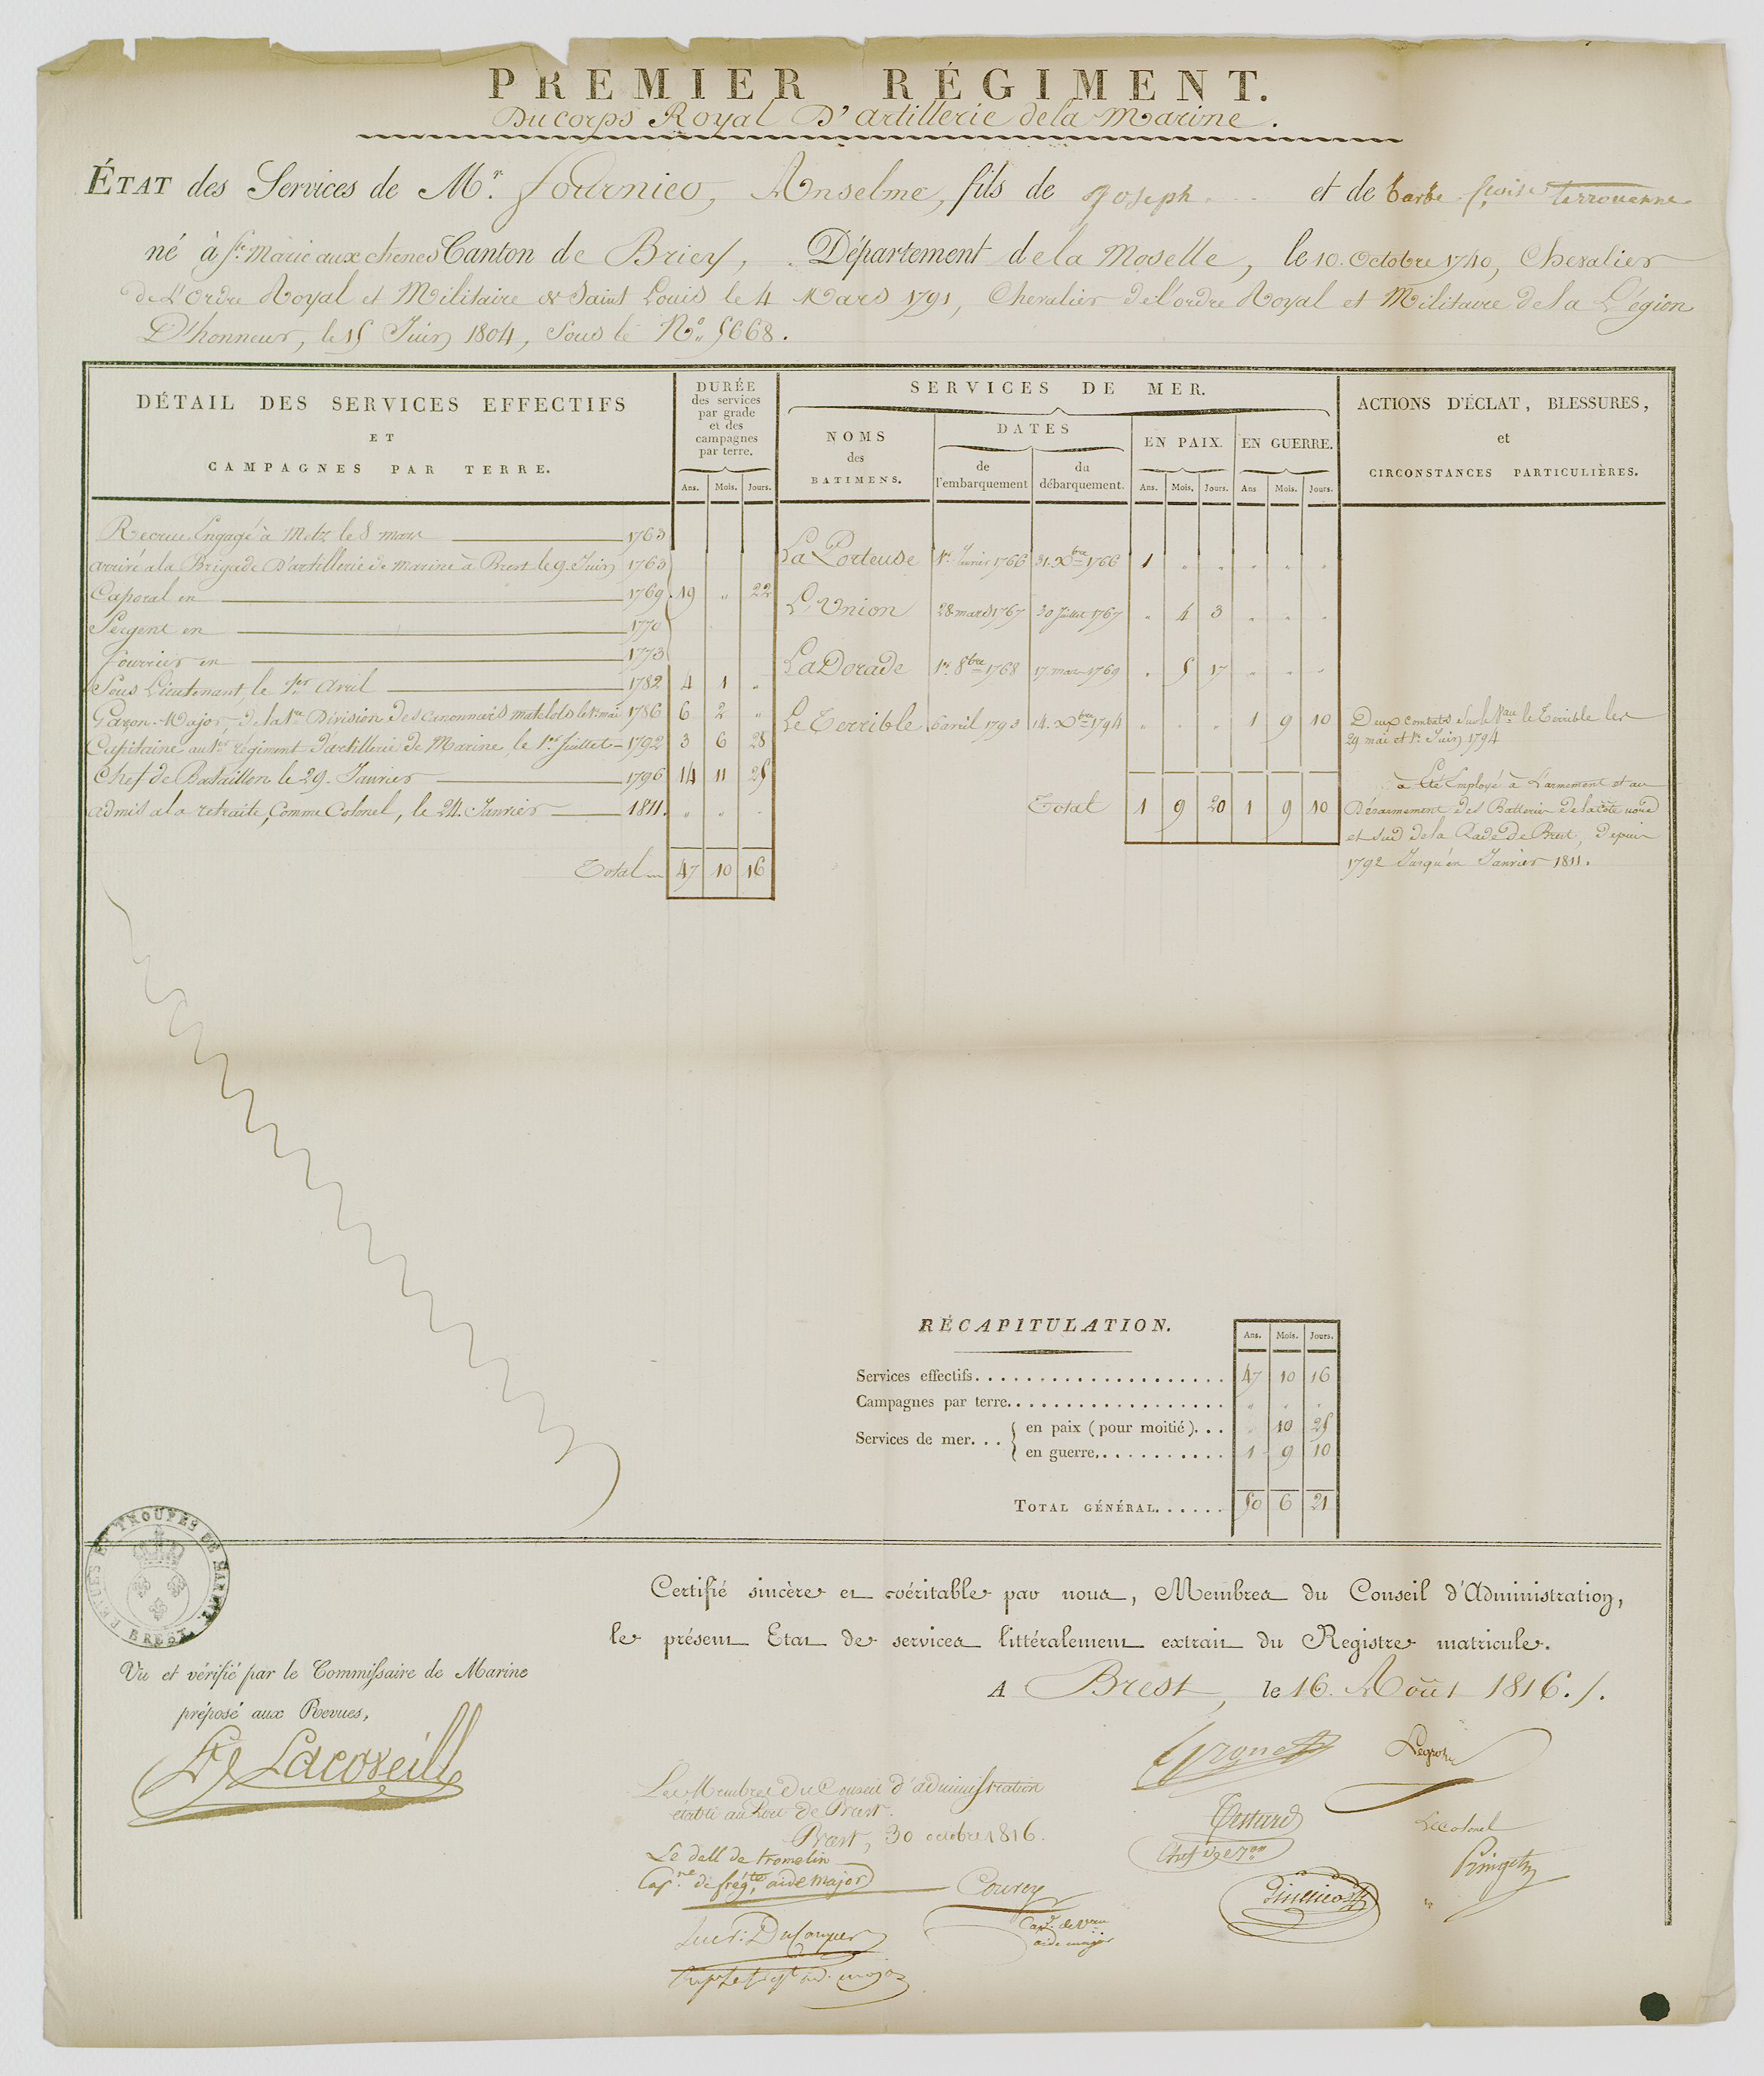 PREMIER RÉGIMENT.
Du corps Royal D'artillerie de la Marine.
ÉTAT des Services de Mr. Fournier, Anselme, fils de Joseph et de barbe fçoise terrouenne
né à Ste. Marie aux chênes Canton de Briey, Département de la Moselle, le 10. Octobre 1740, Chevalier
de L'ordre Royal et Militaire de Saint Louis le 4 Mars 1791, Chevalier de l'ordre Royal et Militaire de la Légion
D'honneur, le 15 Juin 1804, Sous le No. 5668.
DÉTAIL DES SERVICES EFFECTIFS
ET
CAMPAGNES PAR TERRE.
DURÉE
des services
par grade
et des
campagnes
par terre.
Ans. Mois. Jours.
SERVICES DE MER.
NOMS
des
BATIMENS.
DATES
de
l'embarquement
du
débarquement.
EN PAIX.
Ans. Mois. Jours.
EN GUERRE.
Ans Mois. Jours.
ACTIONS D'ÉCLAT, BLESSURES,
et
CIRCONSTANCES PARTICULIÈRES.
Recrue Engagé à Metz le 8 mars 1763
arrivé a la Brigade D'artillerie de Marine à Brest le 9. Juin 1763
Caporal en 1769. 19 " 22
Sergent en 1770
fourrier en 1773
Sous Lieutenant, le 1er avril 1782 4 1 "
Garçon-Major de la 1re Division des canonnais matelots le 1er mai 1786 6 2 "
Capitaine au 1er régiment d'artillerie de Marine, le 1er Juillet 1792 3 6 28
Chef de Bataillon le 29. Janvier 1796 14 11 25
admis a la retraite, Comme Colonel, le 24. Janvier 1811. " "
Total 47 10 16
La Porteuse 1er Janvier 1766 31. Xbre 1766 1 " " " " "
L'Union 28 mars 1767 30 Juillet 1767 " 4 3 " " "
La Dorade 1er 8bre 1768 17. mars 1769 " 5 17 " " "
Le Terrible 5 avril 1793 14. Xbre 1794 " " " 1 9 10
Total 1 9 20 1 9 10
Deux combats Sur le Vau le Terrible les
29 mai et 1er Juin 1794
a Eté Employé à L'armement et au
Désarmement des Batteries de la côte nord
et Sud de la Rade de Brest, depuis
1792 Jusqu'en Janvier 1811.
RÉCAPITULATION.
Ans. Mois. Jours.
Services effectifs 47 10 16
Campagnes par terre " " "
Services de mer... en paix (pour moitié)... " 10 25
en guerre 1 9 10
TOTAL GÉNÉRAL 50 6 21
REVUES ET TROUPES DE MARINE
BREST.
Certifié sincère et véritable par nous, Membres du Conseil d'Administration,
le présent Etat de services littéralement extrait du Registre matricule.
A Brest, le 16. Août 1816./.
Vu et vérifié par le Commissaire de Marine
préposé aux Revues,
Lacoveille
Les Membres Du Conseil d'administration
établi au Port de Brest.
Brest, 30 octobre 1816.
Le dall de tromelin
Capne. de frégte, aide major
Courey
Capne. de Vau
aide major
Testard
Le colonel